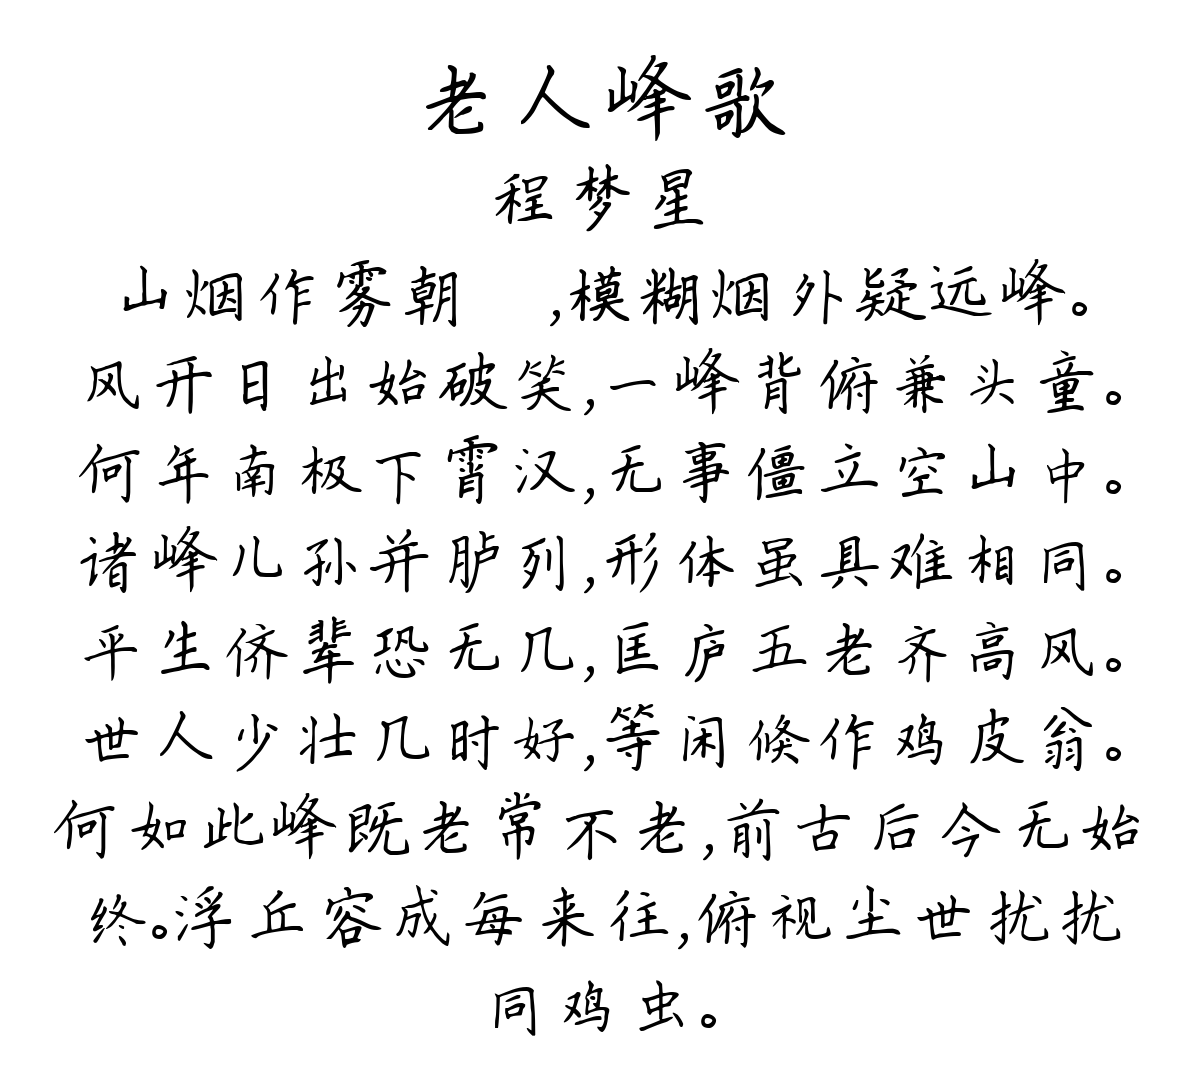 老人峰歌
程梦星
山烟作雾朝　,模糊烟外疑远峰。
风开日出始破笑,一峰背俯兼头童。
何年南极下霄汉,无事僵立空山中。
诸峰儿孙并胪列,形体虽具难相同。
平生侪辈恐无几,匡庐五老齐高风。
世人少壮几时好,等闲倏作鸡皮翁。
何如此峰既老常不老,前古后今无始
终。浮丘容成每来往,俯视尘世扰扰
同鸡虫。